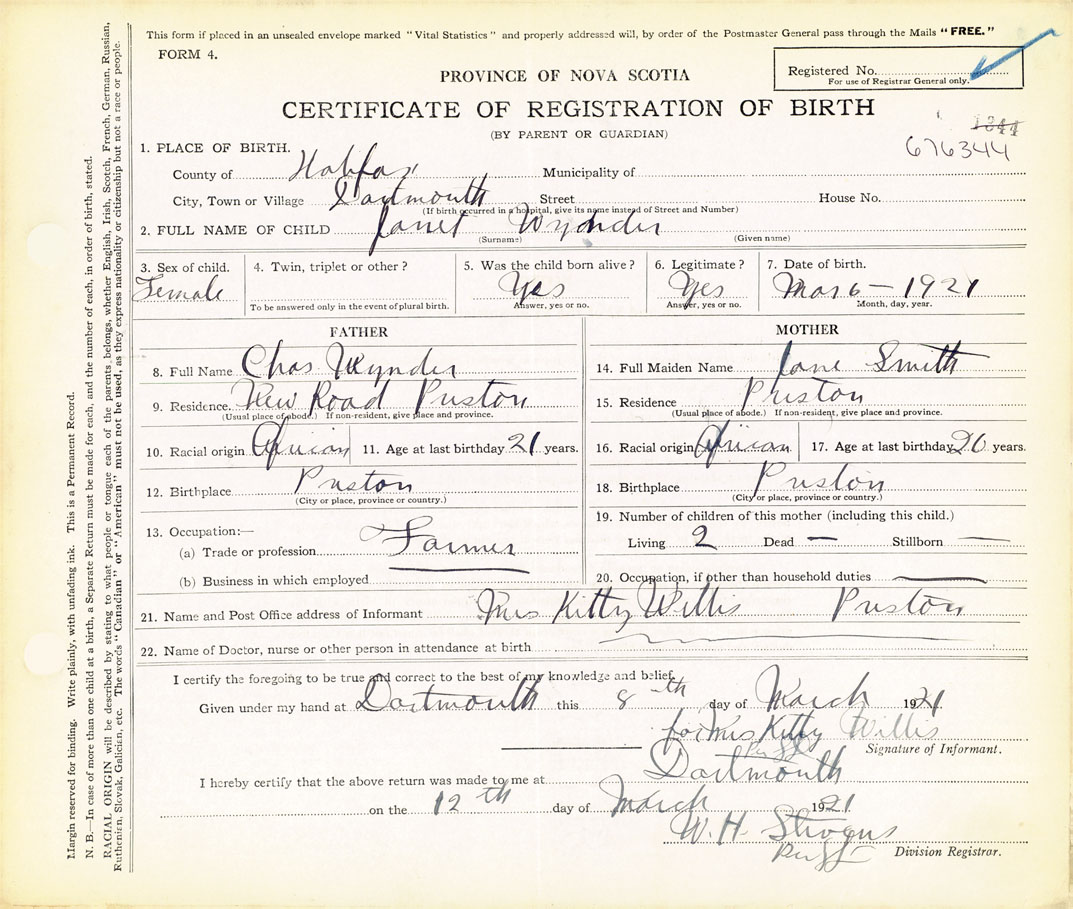 This form if placed in an unsealed envelope marked "Vital Statistics" and properly addressed will, by order of the Postmaster General pass through the Mails "FREE."
FORM 4.
PROVINCE OF NOVA SCOTIA
Registered No.
For use of Registrar General only.
CERTIFICATE OF REGISTRATION OF BIRTH
(BY PARENT OR GUARDIAN)
1344
676344
1. PLACE OF BIRTH.
County of Halifax Municipality of
City, Town or Village Dartmouth Street House No.
(If birth occurred in a hospital, give its name instead of Street and Number)
2. FULL NAME OF CHILD Janet Wynder
(Surname) (Given name)
3. Sex of child. 4. Twin, triplet or other? 5. Was the child born alive? 6. Legitimate? 7. Date of birth.
Female Yes Yes Mar 6 - 1921
To be answered only in the event of plural birth. Answer, yes or no. Answer, yes or no. Month, day, year.
FATHER
8. Full Name Chas Wynder
9. Residence New Road Preston
(Usual place of abode.) If non-resident, give place and province.
10. Racial origin African 11. Age at last birthday 21 years.
12. Birthplace Preston
(City or place, province or country.)
13. Occupation:—
(a) Trade or profession Farmer
(b) Business in which employed
MOTHER
14. Full Maiden Name Jane Smith
15. Residence Preston
(Usual place of abode.) If non-resident, give place and province.
16. Racial origin African 17. Age at last birthday 20 years.
18. Birthplace Preston
(City or place, province or country.)
19. Number of children of this mother (including this child.)
Living 2 Dead — Stillborn —
20. Occupation, if other than household duties —
21. Name and Post Office address of Informant Mrs Kitty Willis Preston
22. Name of Doctor, nurse or other person in attendance at birth
I certify the foregoing to be true and correct to the best of my knowledge and belief.
Given under my hand at Dartmouth this 8th day of March 1921
for Mrs Kitty Willis
Signature of Informant.
I hereby certify that the above return was made to me at Dartmouth
on the 12th day of March 1921
W. H. Stevens
Division Registrar.
Margin reserved for binding. Write plainly, with unfading ink. This is a Permanent Record.
N. B.—In case of more than one child at a birth, a Separate Return must be made for each, and the number of each, in order of birth, stated.
RACIAL ORIGIN will be described by stating to what people or tongue each of the parents belongs, whether English, Irish, Scotch, French, German, Russian,
Ruthenian, Slovak, Galician, etc. The words "Canadian" or "American" must not be used, as they express nationality or citizenship but not a race or people.